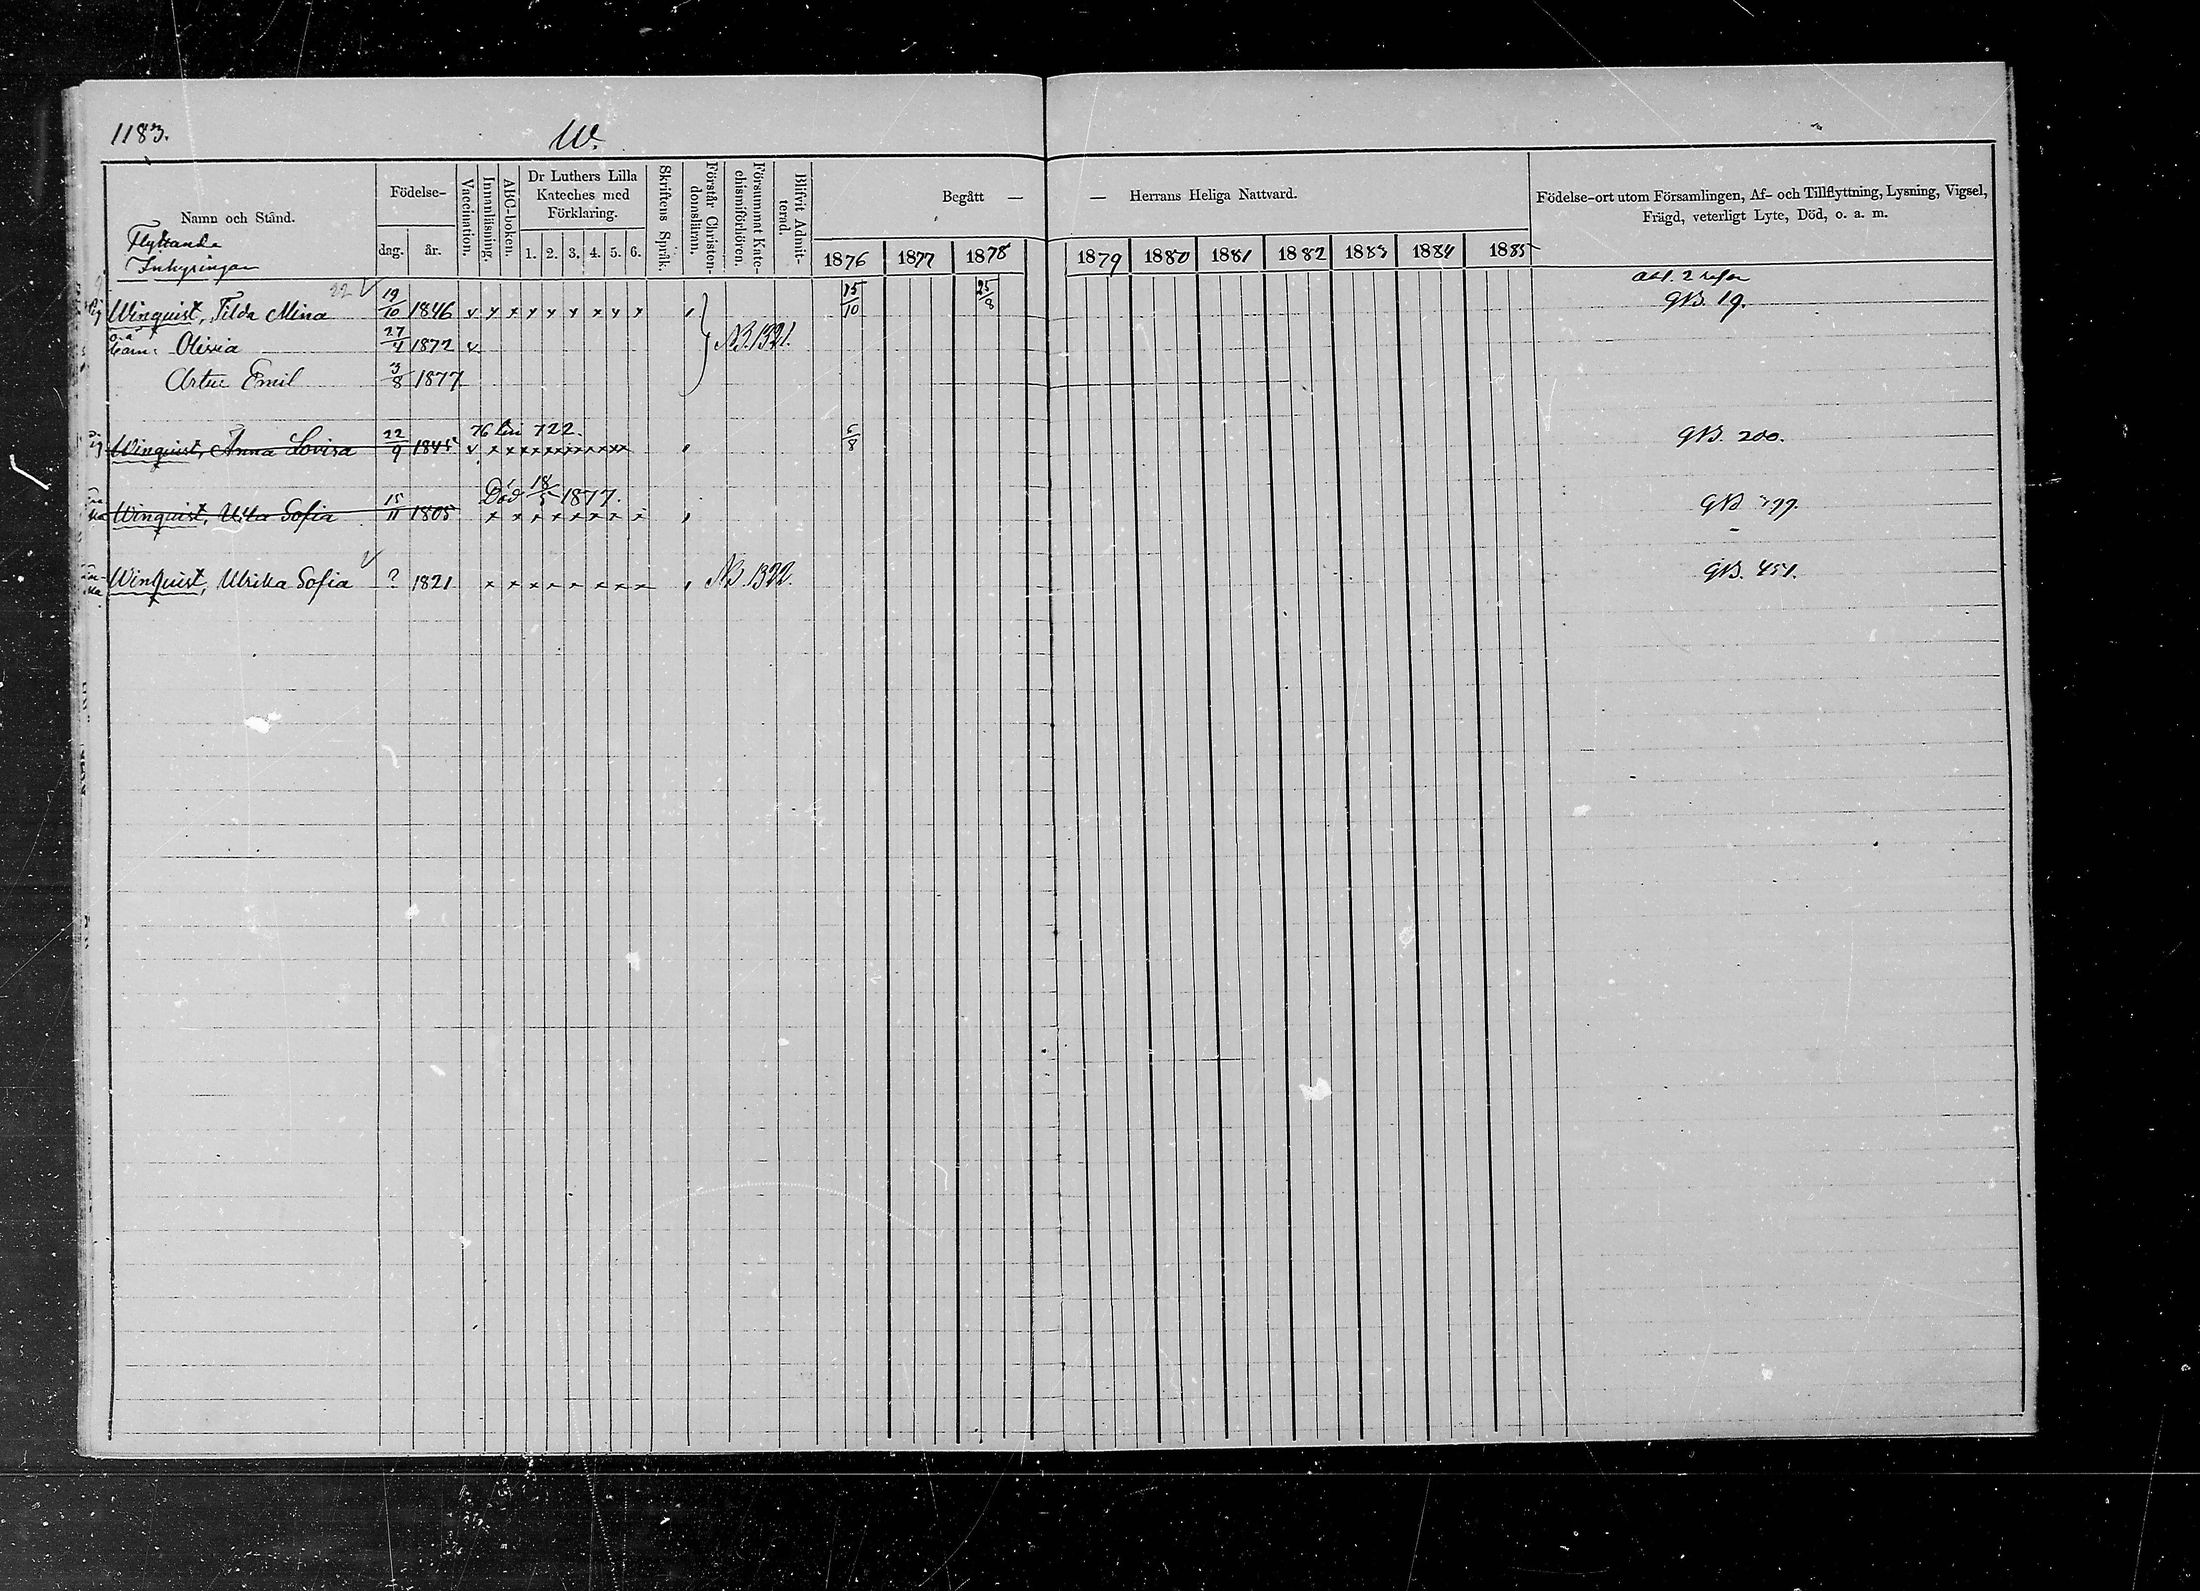 1183.
W.
Namn och Stånd.
Flyttande
Inhysingar
Födelse-
dag.
år.
Vaccination.
Innanläsning.
ABC-boken.
Dr Luthers Lilla
Kateches med
Förklaring.
1. 2. 3. 4. 5. 6.
Skriftens Språk.
Förstår Christen-
domsläran.
Försummat Kate-
chismiförhören.
Blifvit Admit-
terad.
Begått —
— Herrans Heliga Nattvard.
1876 1877 1878 1879 1880 1881 1882 1883 1884 1885
Födelse-ort utom Församlingen, Af- och Tillflyttning, Lysning, Vigsel,
Frägd, veterligt Lyte, Död, o. a. m.
22
Winquist, Tilda Mina 19/10 1846 v x x x x x x x x 15/10 25/8
GB. 19.
Olivia 27/4 1872 v NB. 1321.
Artur Emil 3/8 1877
76 722.
Winquist, Anna Lovisa 22/9 1845 v 5/8 GB. 200.
Död 18/5 1877.
Winquist, Ulla Sofia 15/11 1805 x x x x x x x x GB 399.
Winquist, Ulrika Sofia ? 1821 x x x x x x x x NB. 1322. GB. 451.